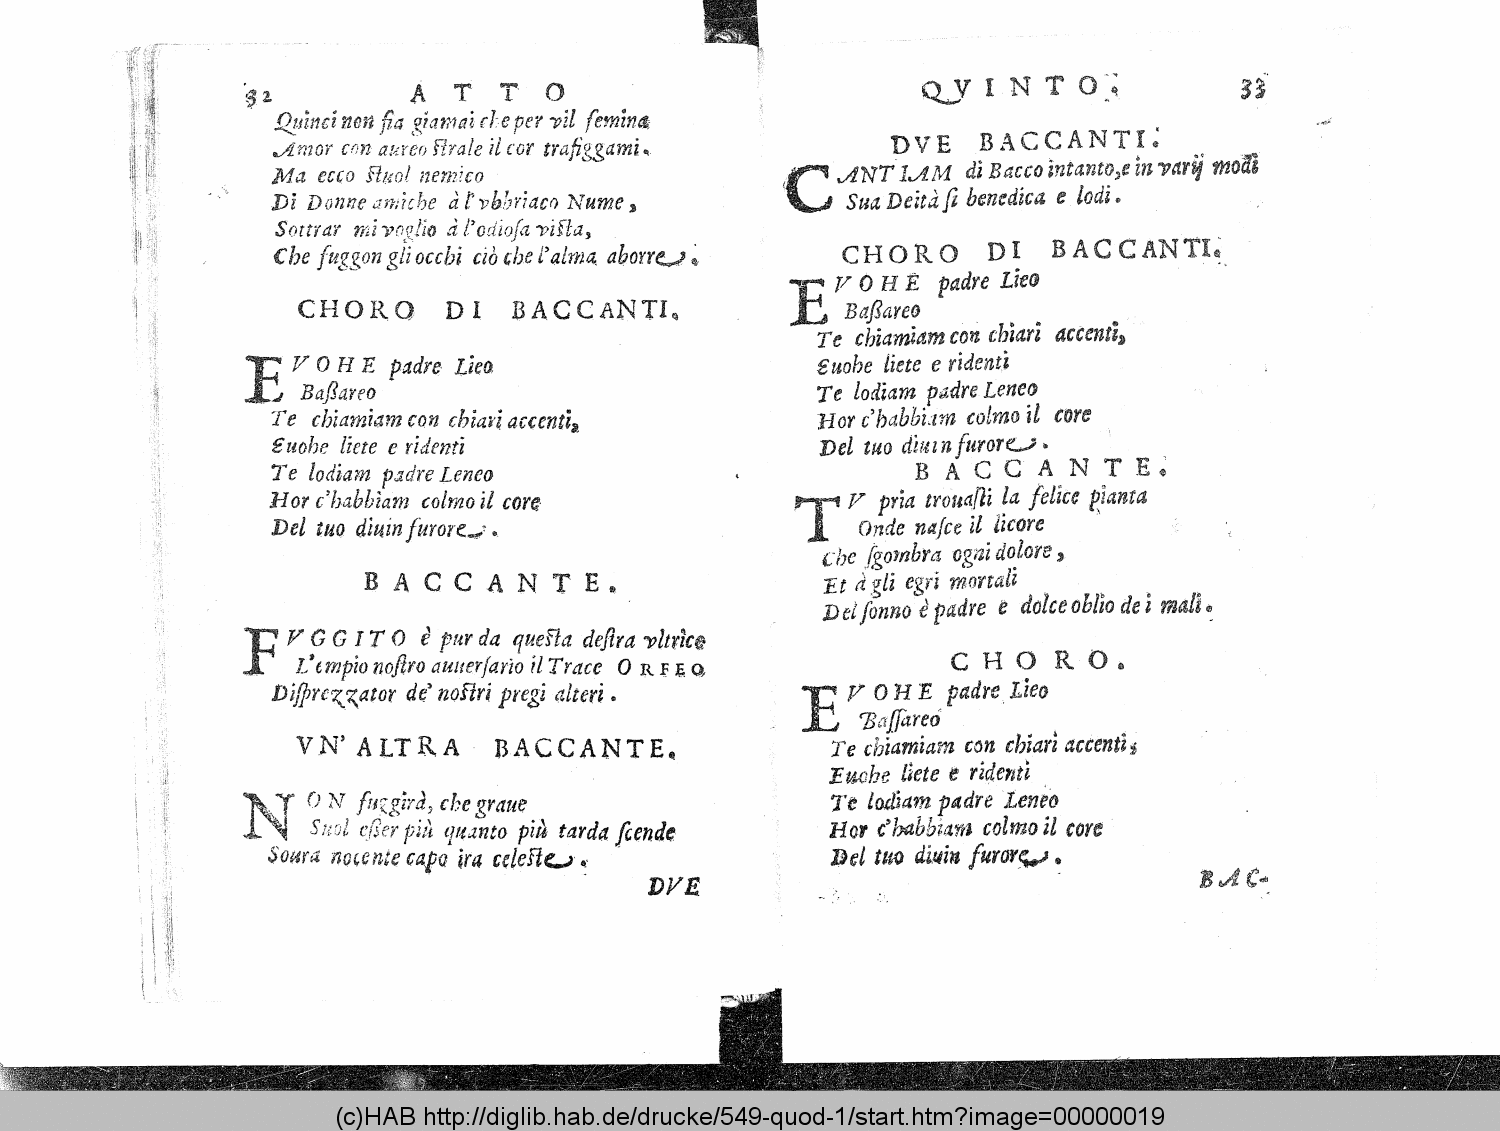 32 ATTO
Quinci non fia giamai che per vil femina
Amor con aureo strale il cor trafiggami.
Ma ecco stuol nemico
Di Donne amiche à l'vbbriaco Nume,
Sottrar mi voglio à l'odiosa vista,
Che fuggon gli occhi ciò che l'alma aborre.
CHORO DI BACCANTI.
EVOHE padre Lieo
Baßareo
Te chiamiam con chiari accenti,
Euohe liete e ridenti
Te lodiam padre Leneo
Hor c'habbiam colmo il core
Del tuo diuin furore.
BACCANTE.
FVGGITO è pur da questa destra vltrice
L'empio nostro auuersario il Trace ORFEO
Disprezzator de' nostri pregi alteri.
VN' ALTRA BACCANTE.
NON fuggirà, che graue
Suol eßer più quanto più tarda scende
Soura nocente capo ira celeste.
DVE
QVINTO. 33
DVE BACCANTI.
CANTIAM di Bacco intanto, e in varij modi
Sua Deità si benedica e lodi.
CHORO DI BACCANTI.
EVOHE padre Lieo
Baßareo
Te chiamiam con chiari accenti,
Euohe liete e ridenti
Te lodiam padre Leneo
Hor c'habbiam colmo il core
Del tuo diuin furore.
BACCANTE.
TV pria trouasti la felice pianta
Onde nasce il licore
Che sgombra ogni dolore,
Et à gli egri mortali
Del sonno è padre e dolce oblio de i mali.
CHORO.
EVOHE padre Lieo
Bassareo
Te chiamiam con chiari accenti,
Euohe liete e ridenti
Te lodiam padre Leneo
Hor c'habbiam colmo il core
Del tuo diuin furore.
BAC-
(c)HAB http://diglib.hab.de/drucke/549-quod-1/start.htm?image=00000019